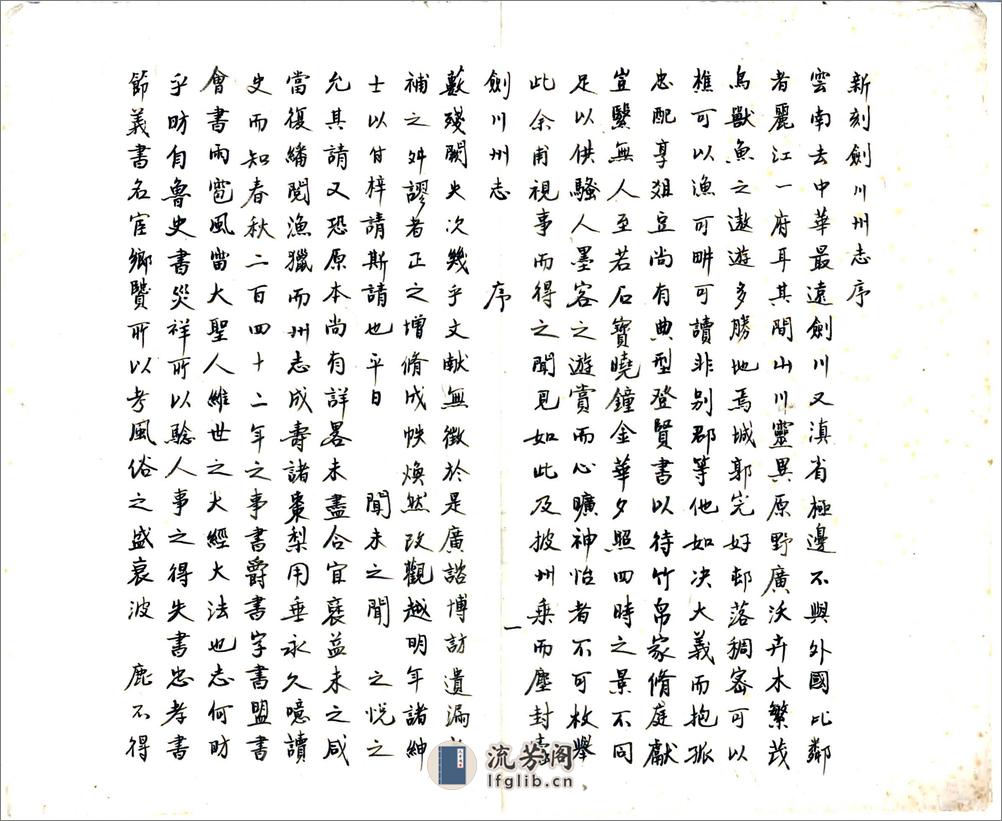 新刻劍川州志序
雲南去中華最遠劍川又滇省極邊不與外國比鄰
者麗江一府耳其間山川靈異原野廣沃卉木繁茂
鳥獸魚之遨遊多勝地焉城郭完好邨落稠密可以
樵可以漁可畊可讀非别郡等他如决大義而抱孤
忠配享爼豆尚有典型登賢書以待竹帛家脩庭獻
豈繄無人至若石寶曉鐘金華夕照四時之景不同
足以供騷人墨客之遊賞而心曠神怡者不可枚舉
此余甫視事而得之聞見如此及披州乘而塵封
劍川州志 序 一
殘闕失次幾乎文献無徵於是廣諮博訪遺漏
補之舛謬者正之增脩成帙煥然改觀越明年諸紳
士以付梓請斯請也平日 聞未之聞 之悅之
允其請又恐原本尚有詳畧未盡合宜裒益未之咸
當復繙閱漁獵而州志成壽諸棗梨用垂永久噫讀
史而知春秋二百四十二年之事書爵書字書盟書
會書雨雹風雷大聖人維世之大經大法也志何昉
乎昉自魯史書災祥所以騐人事之得失書忠孝書
節義書名宦鄉贒所以考風俗之盛衰波 鹿不得
流芳阁
lfglib.cn